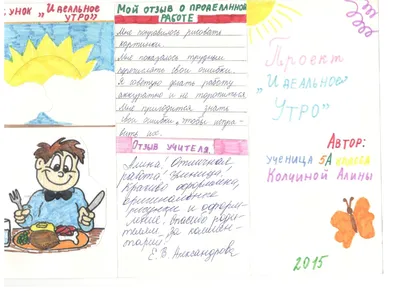 СУНОК „ИДЕАЛЬНОЕ
УТРО"
Мой отзыв о проделанной
работе
Мне понравилось рисовать
картинки.
Мне показалось трудным
свои ошибки.
Я советую делать работу
аккуратно и не торопиться
Мне пригодится знать
свои ошибки, чтобы испра-
вить их.
Отзыв учителя.
Алина! Отличная
работа! Умница!
Красиво оформлена,
оригинальные
рисунки и оформ-
ление. Спасибо роди-
телям за коммен-
тарии!
Е.В. Александрова
Проект
„Идеальное
Утро"
Автор:
ученица 5А класса
Колчиной Алины
2015